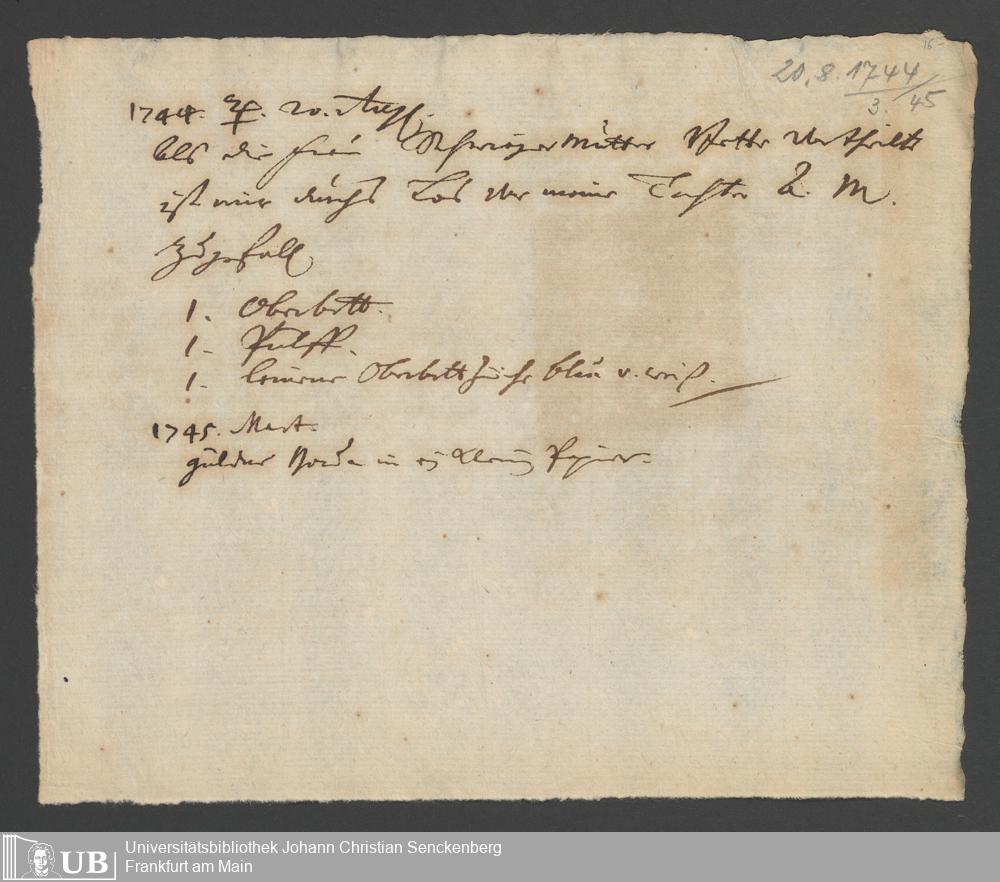 16
20.8.1744
3. 45
1744. ♃. 20. Aug.
Als die Frau Schwiger Mutter Bette vertheilt
ist mir durchs Los vor meine Tochter A. M.
Zugefall
1. Oberbett.
1. Pulff.
1. leinene Oberbettzüche blau u. weiß.
1745. Mart.
güldne in ein klein Papier.
UB Universitätsbibliothek Johann Christian Senckenberg
Frankfurt am Main